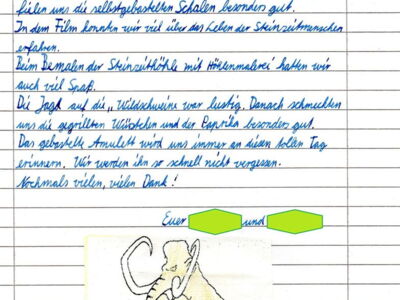 fielen uns die selbstgebastelten Schalen besonders gut.
In dem Film konnten wir viel über das Leben der Steinzeitmenschen
erfahren.
Beim Bemalen der Steinzeithöhle mit Höhlenmalerei hatten wir
auch viel Spaß.
Die Jagd auf die „Wildschweine war lustig. Danach schmeckten
uns die gegrillten Würstchen und der Paprika besonders gut.
Das gebastelte Amulett wird uns immer an diesen tollen Tag
erinnern. Wir werden ihn so schnell nicht vergessen.
Nochmals vielen, vielen Dank!
Euer und